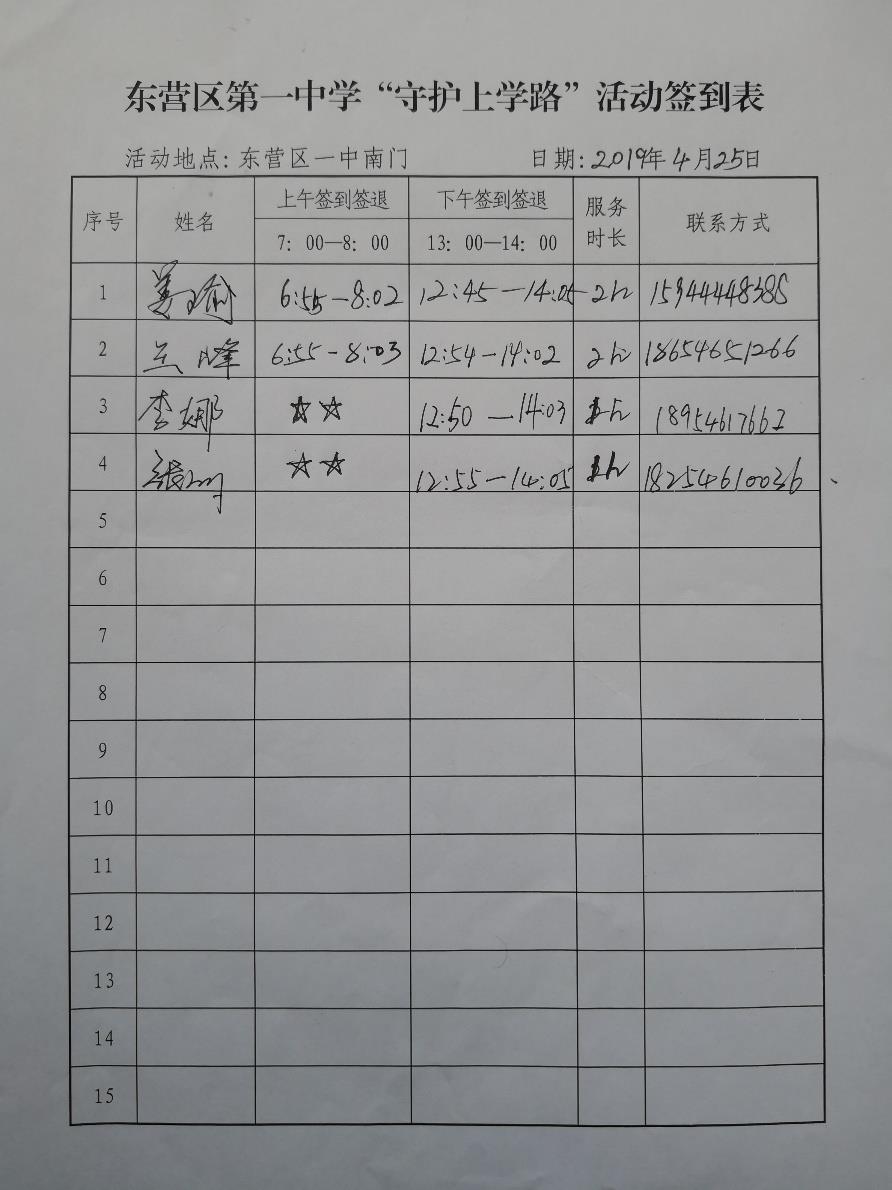 东营区第一中学“守护上学路”活动签到表
活动地点：东营区一中南门 日期：2019年4月25日
序号 姓名 上午签到签退 下午签到签退 服务时长 联系方式
7：00—8：00 13：00—14：00
1 姜瑜 6:55-8:02 12:45-14:05 2h 15944448385
2 兰峰 6:55-8:03 12:54-14:02 2h 18654651266
3 李娜 ☆☆ 12:50-14:03 1h 18954617662
4 张 ☆☆ 12:55-14:05 1h 18254610036
5
6
7
8
9
10
11
12
13
14
15